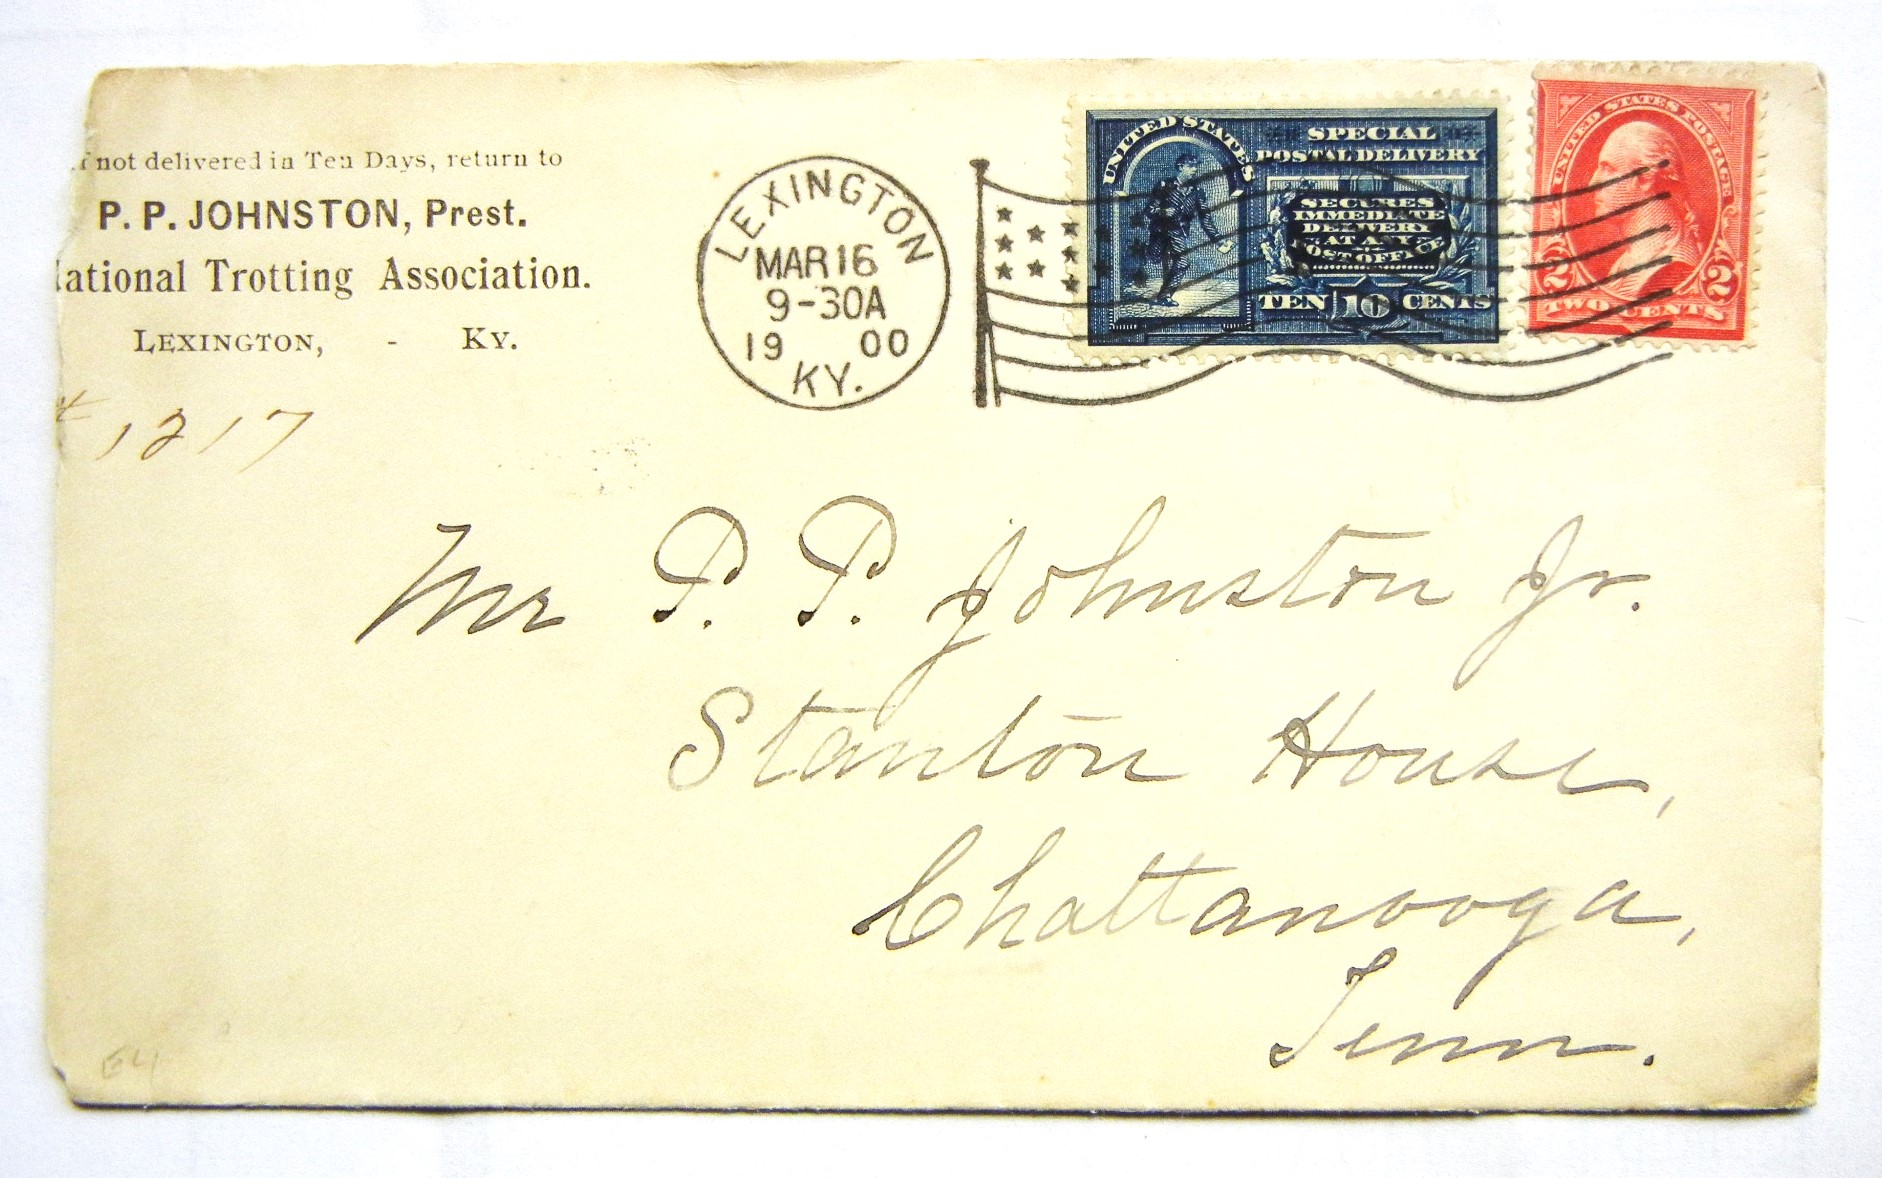 f not delivered in Ten Days, return to
P. P. JOHNSTON, Prest.
ational Trotting Association.
LEXINGTON, - KY.
1217
LEXINGTON
MAR 16
9-30A
19 00
KY.
UNITED STATES
SPECIAL
POSTAL DELIVERY
SECURES
IMMEDIATE
DELIVERY
AT ANY
POST OFFICE
TEN 10 CENTS
UNITED STATES POSTAGE
2 2
TWO CENTS
Mr P. P. Johnston Jr.
Stanton House,
Chattanooga,
Tenn.
E4